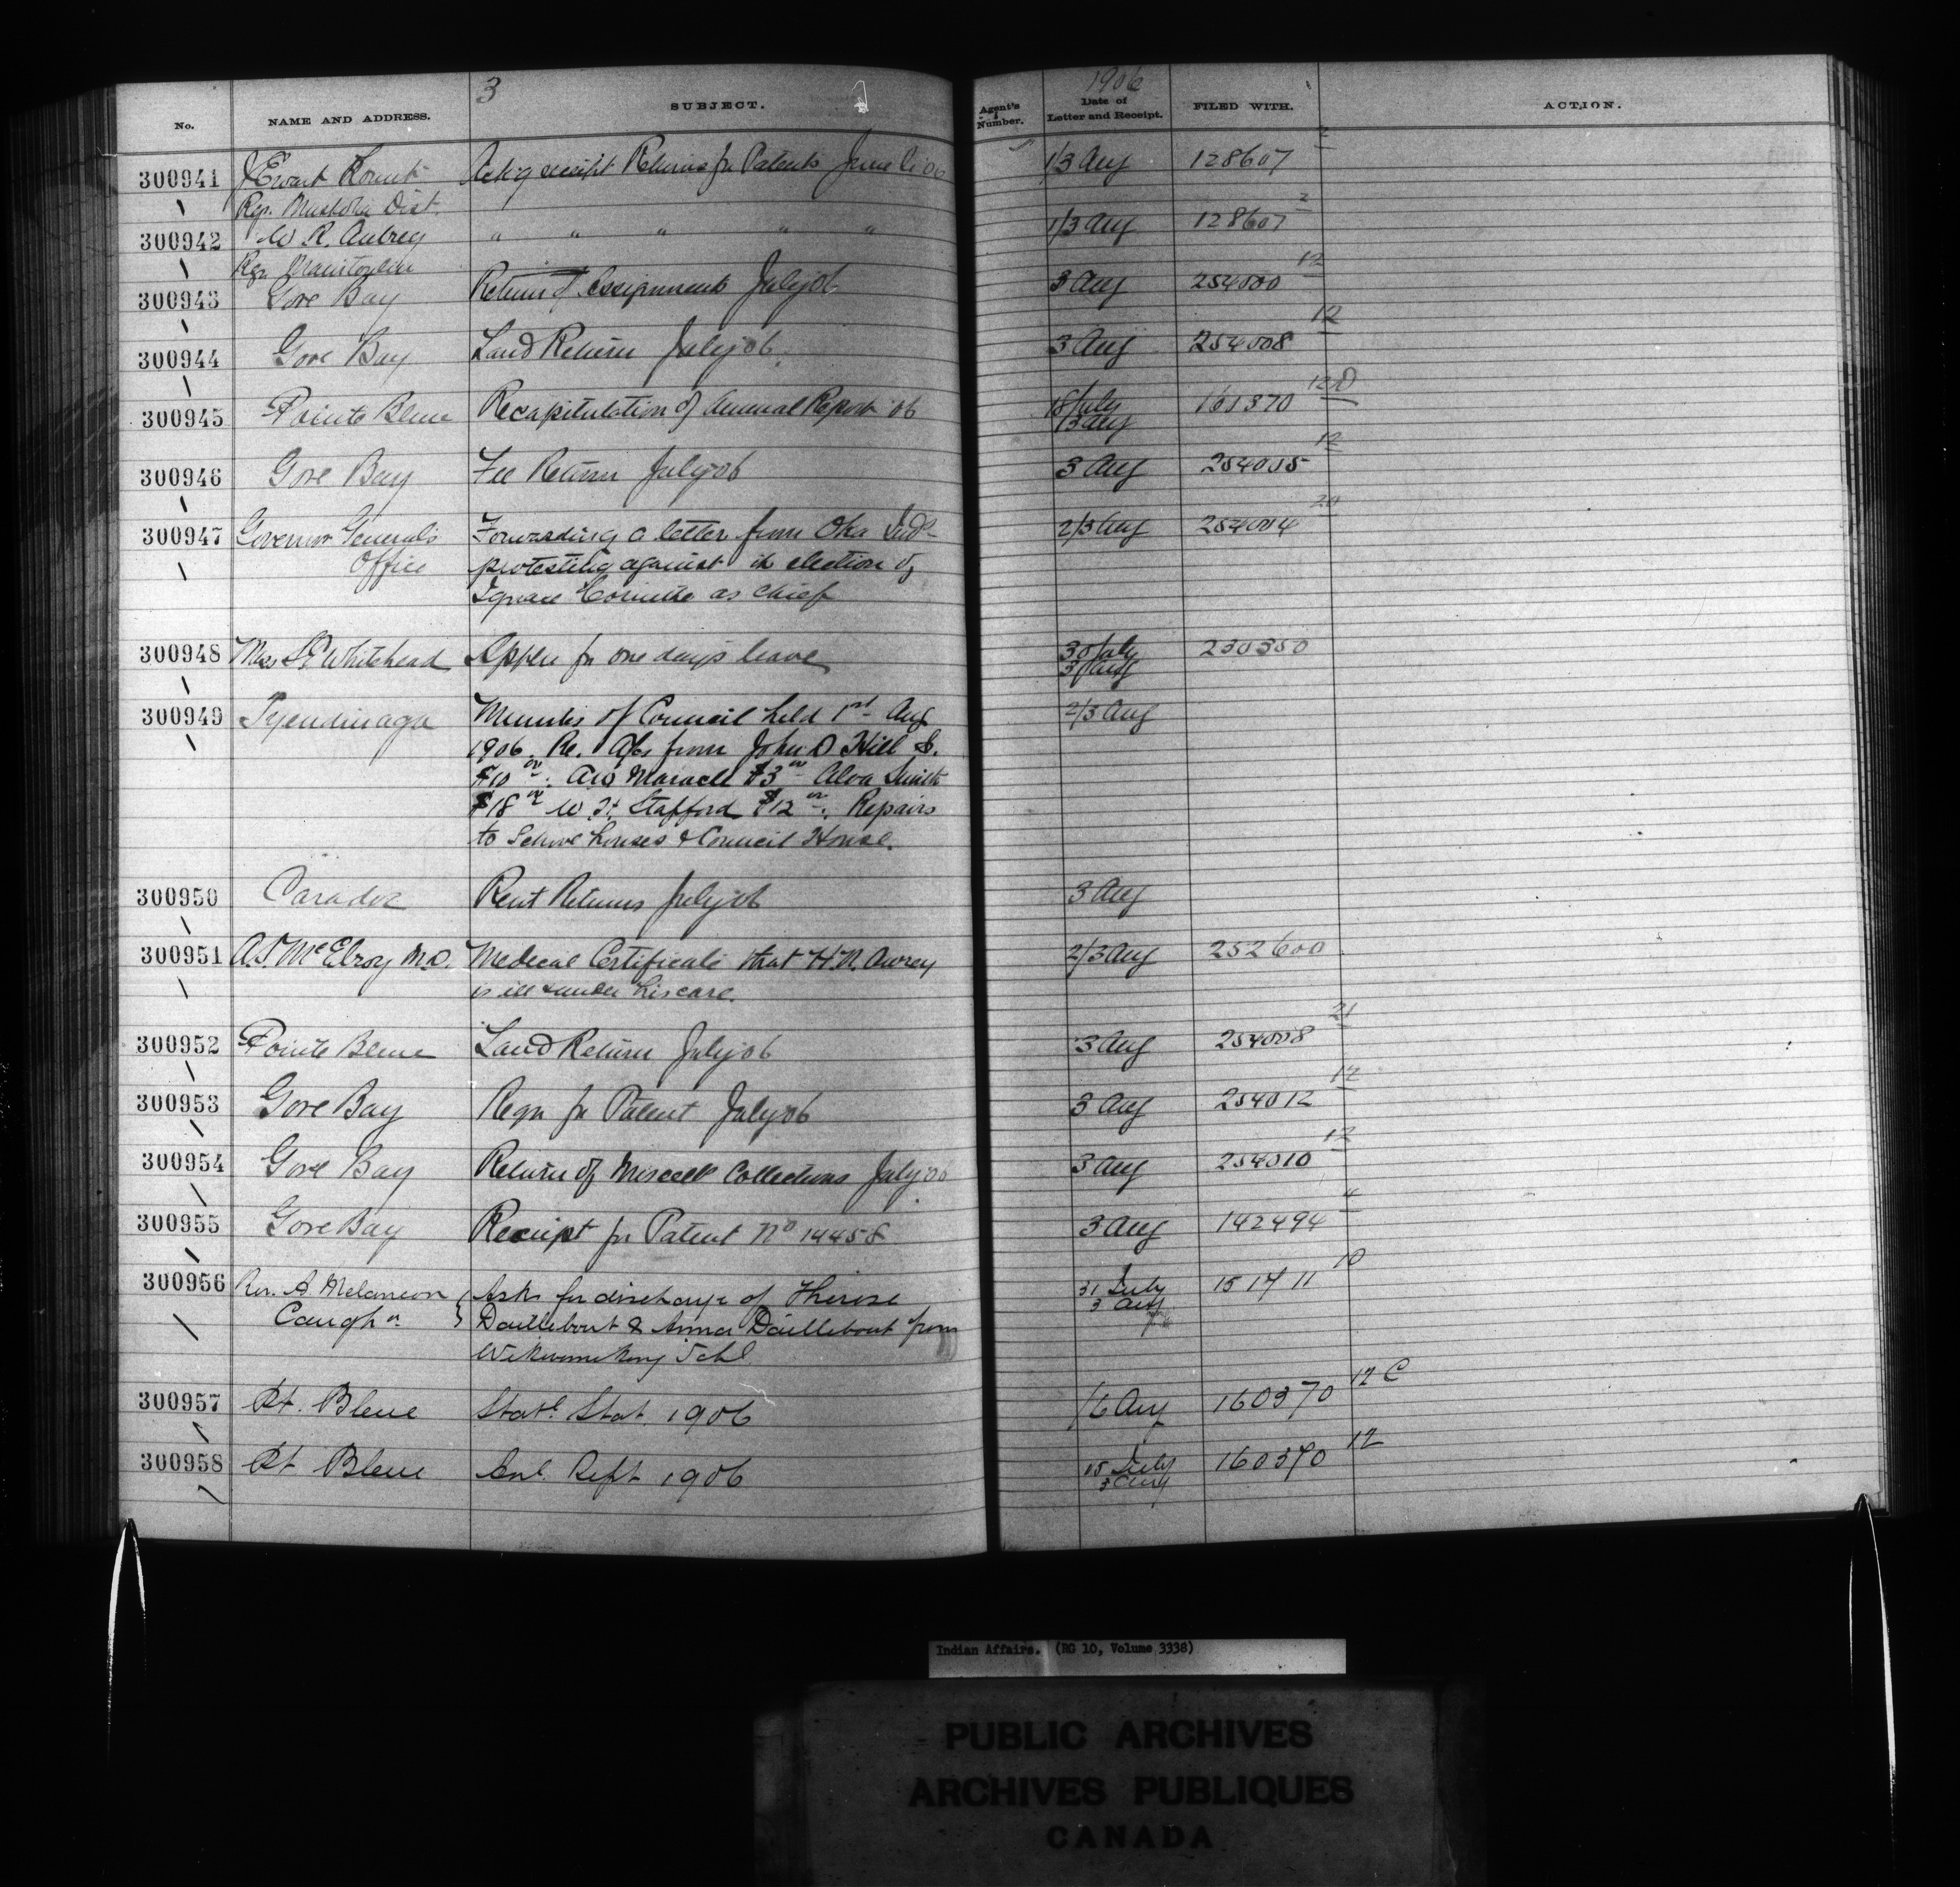 3 1906
No. NAME AND ADDRESS. SUBJECT. Agent's Number. Date of Letter and Receipt. FILED WITH. ACTION.
300941 J Ewart Ackg receipt Returns for Patents June 06 1/3 Aug 128607 2
Reg. Muskoka Dist.
300942 W R. Aubrey " " " " " 1/3 Aug 128607 2
Reg. Manitoulin
300943 Gore Bay Return of Assignments July 06 3 Aug 254000 12
300944 Gore Bay Land Return July 06 3 Aug 254008 12
300945 Pointe Bleue Recapitulation of Annual Report 06 18 July 3 Aug 161370 12D
300946 Gore Bay Fee Return July 06 3 Aug 254005 12
300947 Governor Generals Forwarding a letter from Oka Inds 2/3 Aug 254004 20
Office protesting against the election of
as Chief
300948 Miss Whitehead Appln for one days leave 30 July 3 Aug 230350
300949 Tyendinaga Minutes of Council held 1st Aug 2/3 Aug
1906. Re. A/cs from John D Hill Sr.
$10 00. Maracle $3 00 Alva Smith
$18 00 W. H. Stafford $12 00. Repairs
to School houses & Council House.
300950 Caradoc Rent Returns July 06 3 Aug
300951 McElroy M.D. Medical Certificate that H.N. Awrey 2/3 Aug 252600
is ill & under his care.
300952 Pointe Bleue Land Return July 06 3 Aug 254008 21
300953 Gore Bay Regn for Patent July 06 3 Aug 254012 12
300954 Gore Bay Return of Miscell Collections July 06 3 Aug 254010 12
300955 Gore Bay Receipt for Patent No 14458 3 Aug 142494 4
300956 Rev. A. Melancon Asks for discharge of Therese 31 July 3 Aug 151711 10
Caughn. Daillebout & Anna Daillebout from
Wikwemikong Schl
300957 Pt. Bleue Statl. Stat. 1906 /6 Aug 160370 12 C
300958 Pt Bleue Anl. Rept 1906 15 July 3 Aug 160370 12
Indian Affairs. (RG 10, Volume 3338)
PUBLIC ARCHIVES
ARCHIVES PUBLIQUES
CANADA